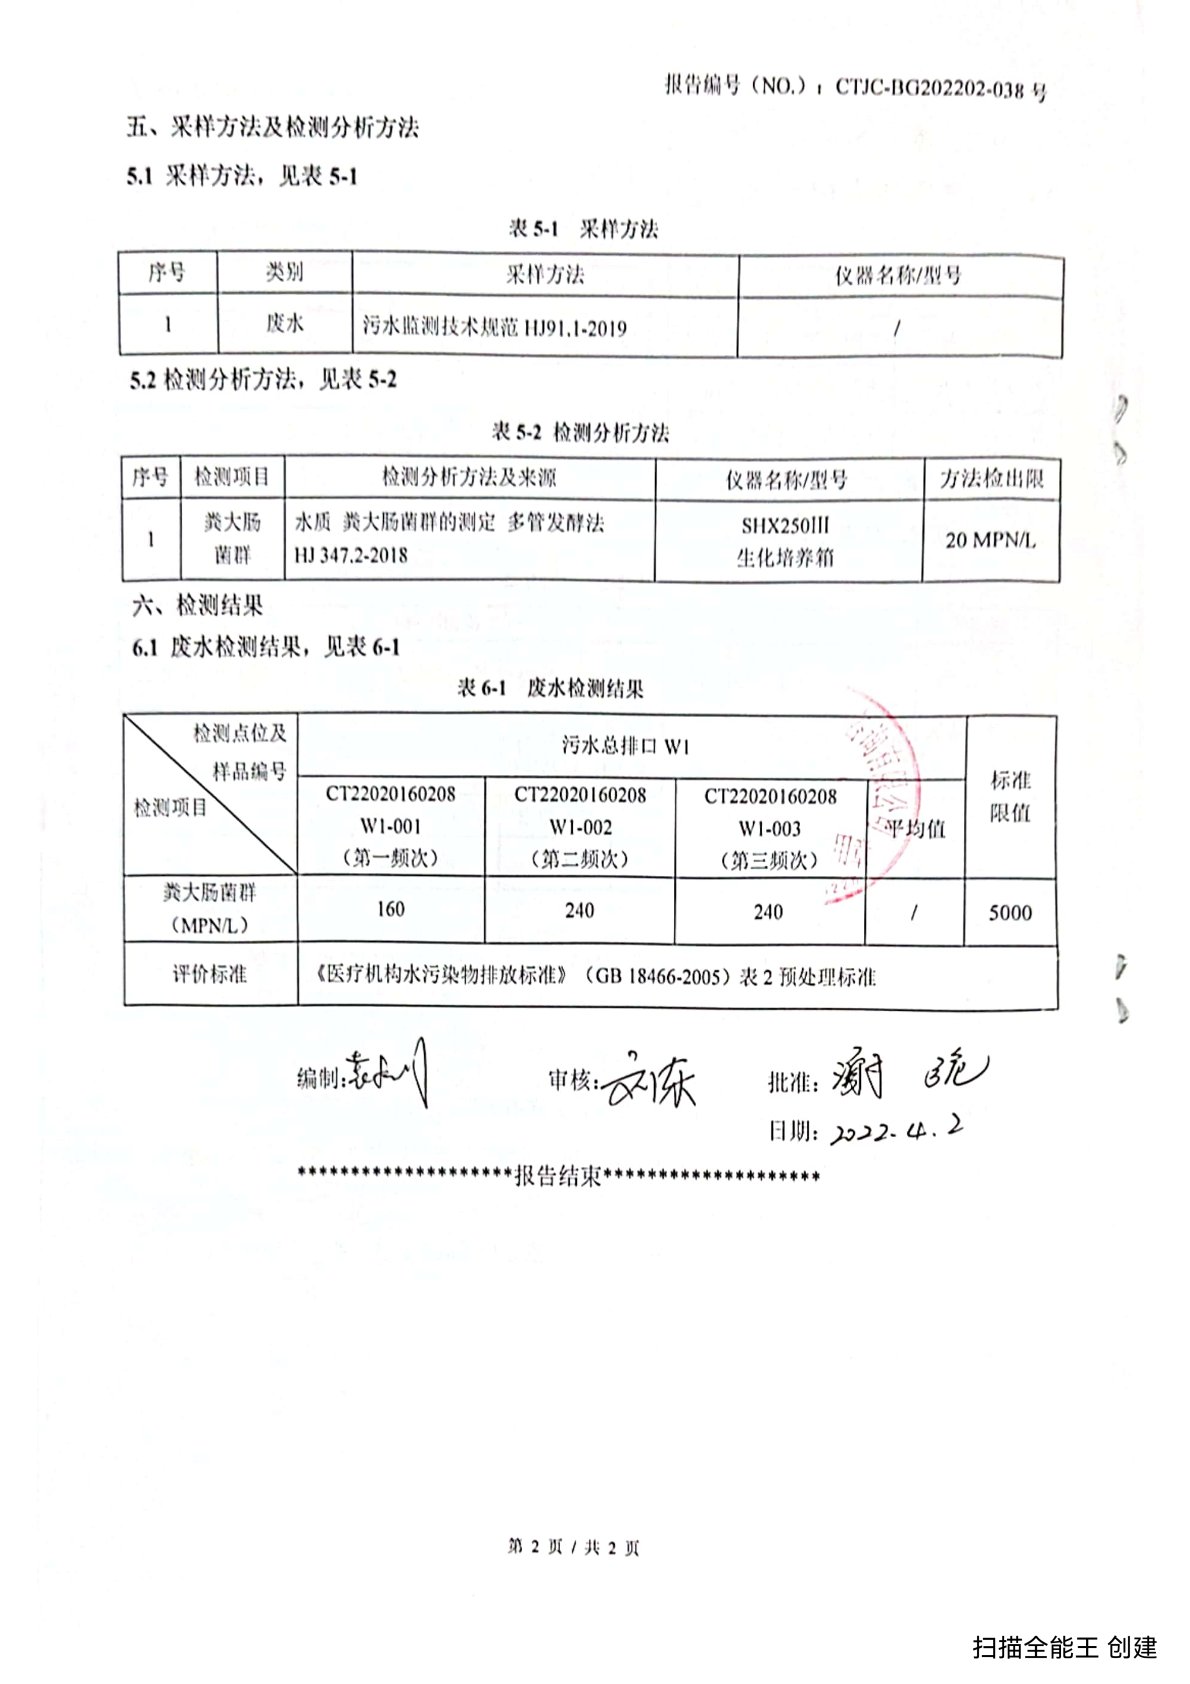 报告编号（NO.）：CTJC-BG202202-038 号
五、采样方法及检测分析方法
5.1 采样方法，见表 5-1
表 5-1 采样方法
序号 类别 采样方法 仪器名称/型号
1 废水 污水监测技术规范 HJ91.1-2019 /
5.2 检测分析方法，见表 5-2
表 5-2 检测分析方法
序号 检测项目 检测分析方法及来源 仪器名称/型号 方法检出限
1 粪大肠菌群 水质 粪大肠菌群的测定 多管发酵法 HJ 347.2-2018 SHX250III 生化培养箱 20 MPN/L
六、检测结果
6.1 废水检测结果，见表 6-1
表 6-1 废水检测结果
检测点位及样品编号 检测项目 污水总排口 W1 标准限值
CT22020160208 W1-001 （第一频次） CT22020160208 W1-002 （第二频次） CT22020160208 W1-003 （第三频次） 平均值
粪大肠菌群（MPN/L） 160 240 240 / 5000
评价标准 《医疗机构水污染物排放标准》（GB 18466-2005）表 2 预处理标准
编制: 审核: 批准:
日期: 2022.4.2
********************报告结束********************
第 2 页 / 共 2 页
扫描全能王 创建